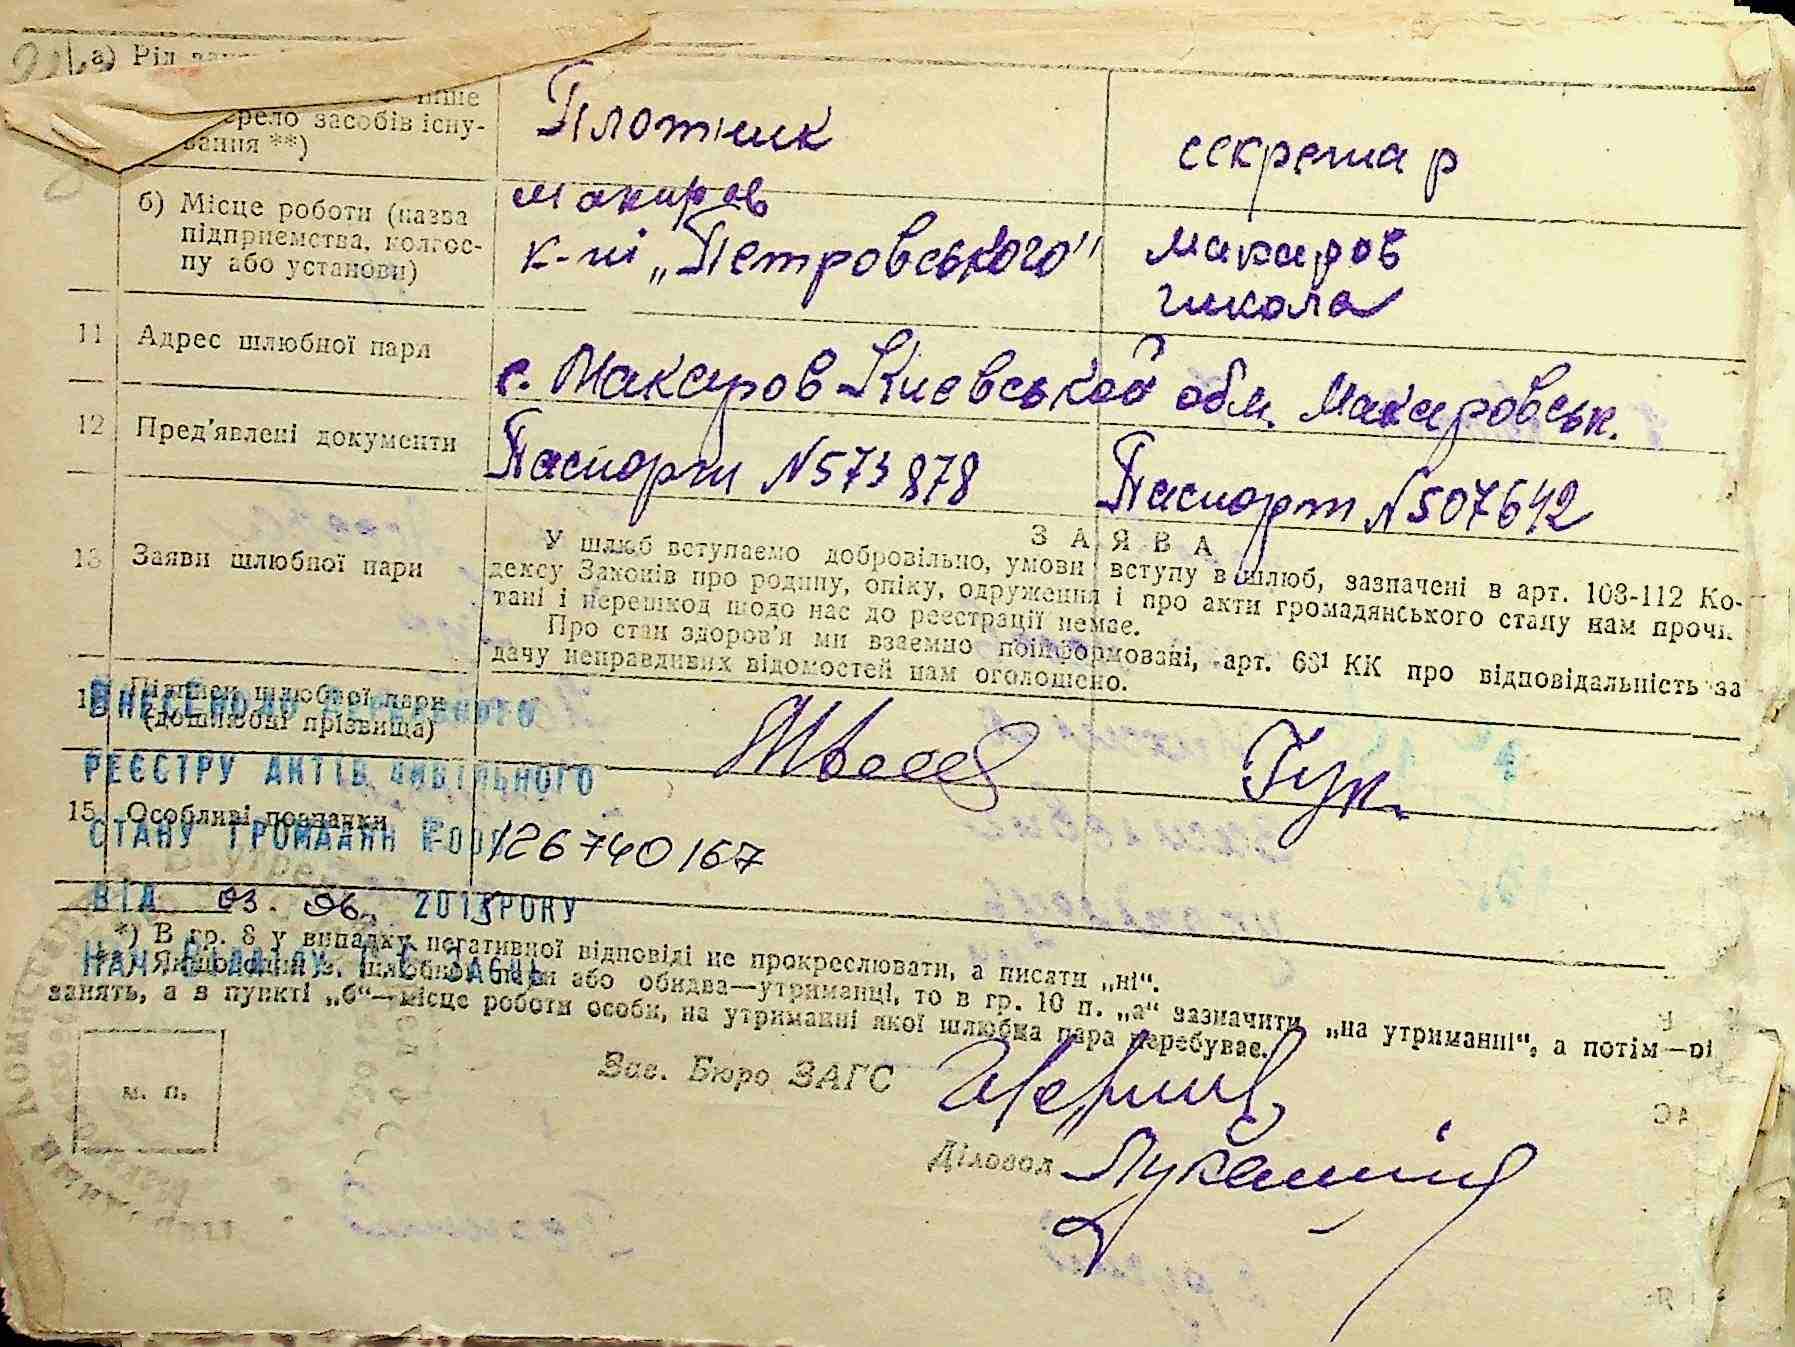 а) Рід
інше
рело засобів існу-
вання **)
Плотник
секретар
б) Місце роботи (назва
підприємства, колгос-
пу або установи)
Макаров
к-пі „Петровського"
Макаров
школа
11 Адрес шлюбної пари
с. Макаров Київської обл. Макаровськ.
12 Пред'явлені документи
Паспорт №573878
Паспорт №507642
13 Заяви шлюбної пари
ЗАЯВА
У шлюб вступаємо добровільно, умови вступу в шлюб, зазначені в арт. 103-112 Ко-
дексу Законів про родину, опіку, одруження і про акти громадянського стану нам прочи-
тані і перешкод щодо нас до реєстрації немає.
Про стан здоров'я ми взаємно поінформовані, арт. 68¹ КК про відповідальність за
дачу неправдивих відомостей нам оголошено.
Підписи шлюбної пари
(дошлюбні прізвища)
Гук
ВНЕСЕНО ДО ДЕРЖАВНОГО
РЕЄСТРУ АКТІВ ЦИВІЛЬНОГО
15 Особливі позначки
СТАНУ ГРОМАДЯН
126740167
ВІД 03. 06. 2013 РОКУ
*) В гр. 8 у випадку негативної відповіді не прокреслювати, а писати „ні".
або обидва—утриманці, то в гр. 10 п. „а" зазначити „на утриманні", а потім—рі
занять, а в пункті „б"—місце роботи особи, на утриманні якої шлюбна пара перебуває.
Зав. Бюро ЗАГС
м. п.
Діловод